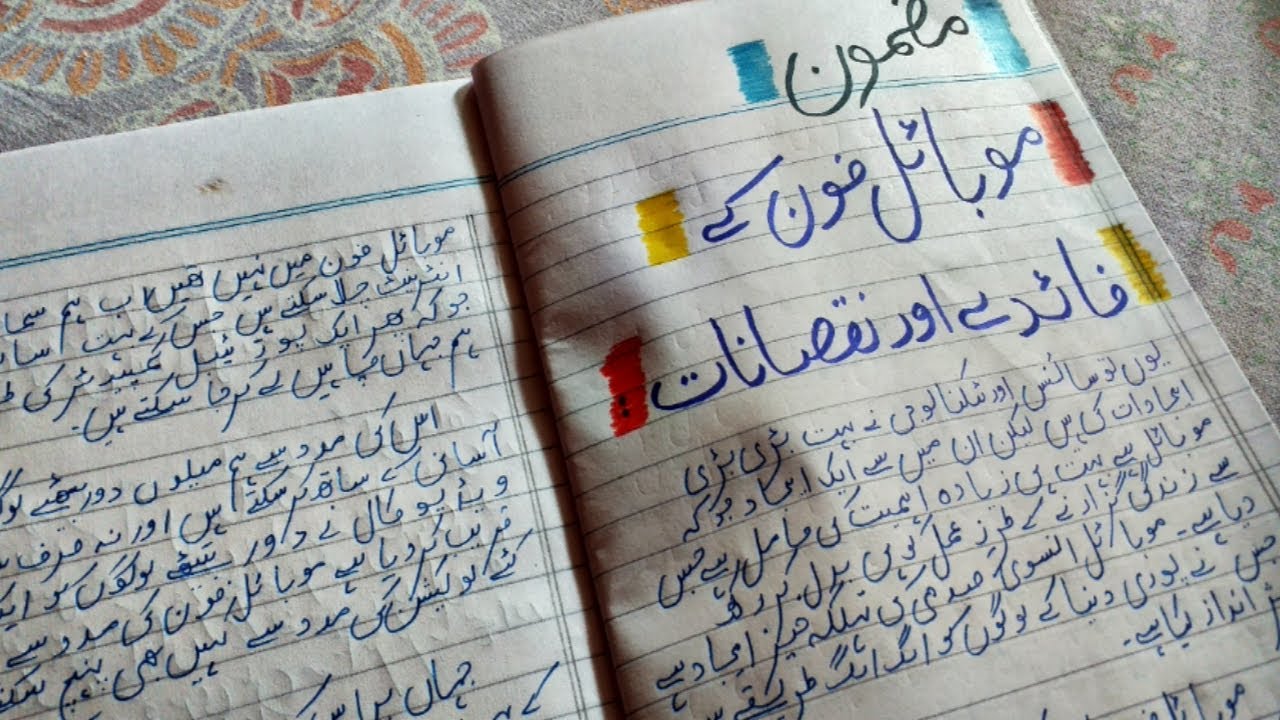 مضمون
موبائل فون کے
فائدے اور نقصانات:
یوں تو سائنس اور ٹیکنالوجی نے بہت بڑی بڑی
ایجادات کی ہیں لیکن ان میں سے ایک ایجاد جو کہ
موبائل ہے بہت ہی زیادہ اہمیت کی حامل ہے جس
سے زندگی گزارنے کے طرز عمل کو ہی بدل کر رکھ
دیا ہے۔ موبائل اکیسوی صدی کی تہلکہ خیز ایجاد ہے
جس نے پوری دنیا کے لوگوں کو الگ الگ طریقے
انداز کیا ہے۔
موبائل
موبائل فون میں نہیں تھیں اب ہم
انٹرنیٹ چلا سکتے ہیں جس کے بہت
جو کہ پھر ایک پورٹیبل کمپیوٹر کی
ہم جہاں چاہیں لے کر جا سکتے ہیں۔
اس کی مدد سے ہم میلوں دور بیٹھے
آسانی کے ساتھ کر سکتے ہیں اور نہ صرف
ویڈیو کال نے دور بیٹھے لوگوں کو
قریب کر دیا ہے موبائل فون کی مدد سے
لوکیشن کی مدد سے کہیں بھی پہنچ
جہاں پر اس
کے